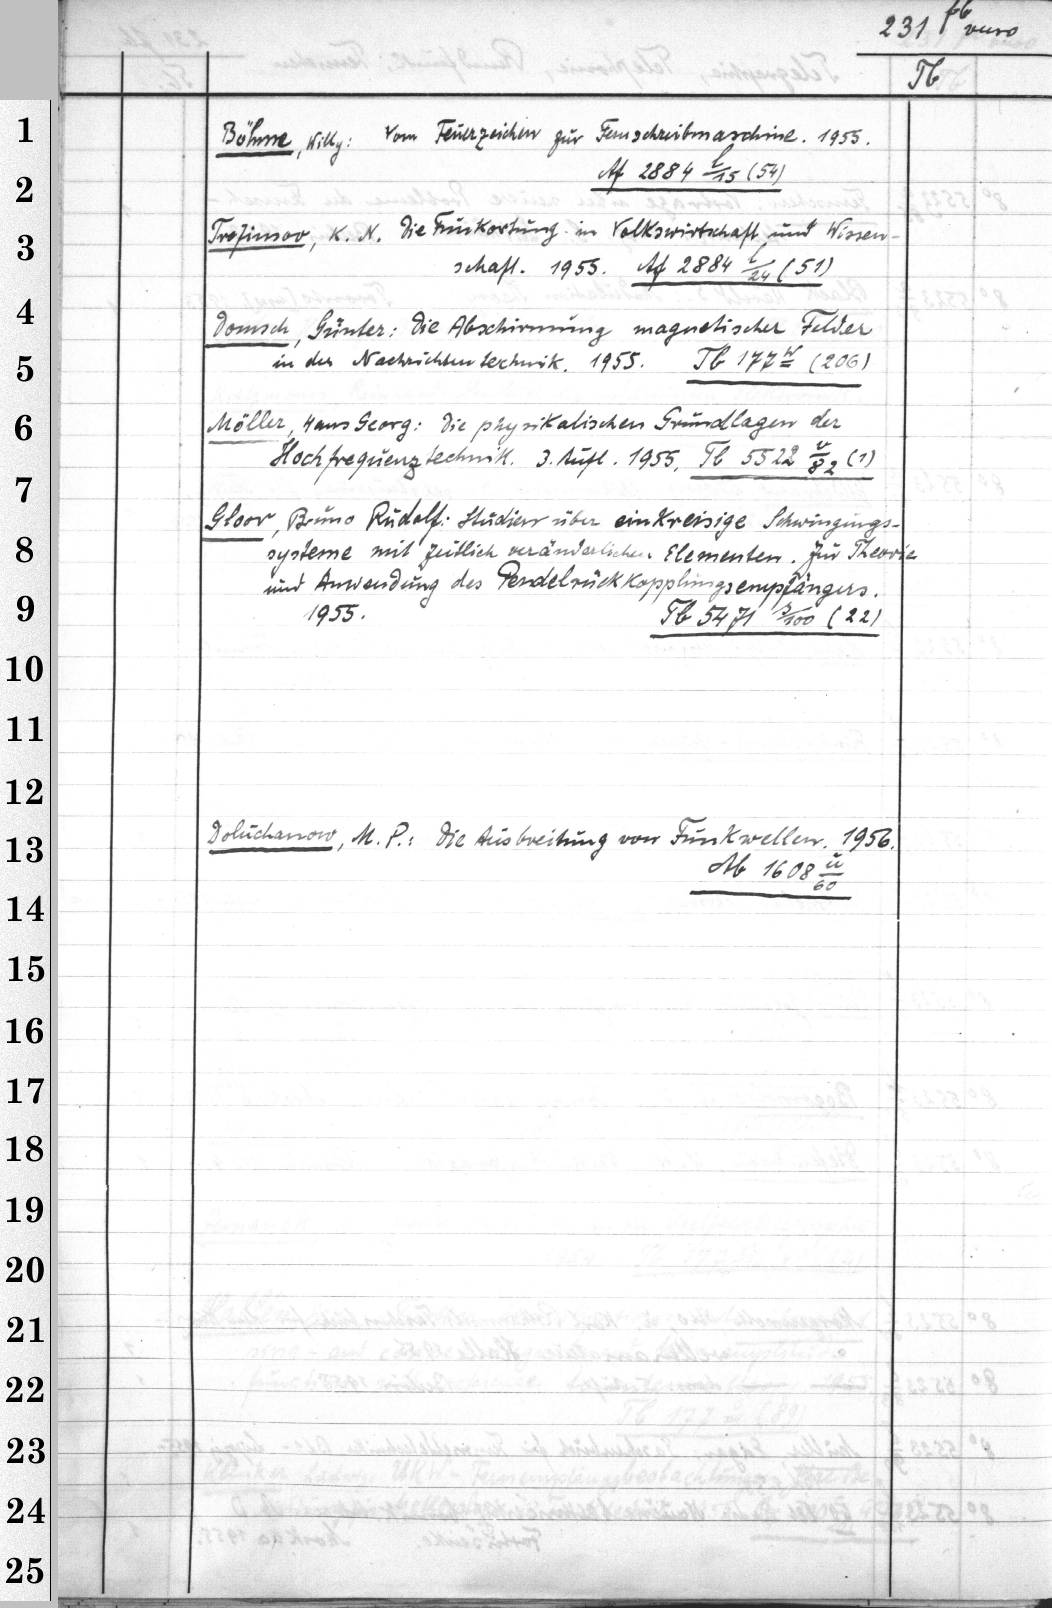 231 fb verso
Tb
1
Böhme, Willy: Vom Feuerzeichen zur Fernschreibmaschine. 1955.
2
Af 2884 l/15 (54)
3
Trofimov, K. N. Die Funkortung in Volkswirtschaft und Wissen-
schaft. 1955. Af 2884 l/24 (51)
4
Domsch, Günter: Die Abschirmung magnetischer Felder
5
in der Nachrichtentechnik. 1955. Tb 177 w (206)
6
Möller, Hans Georg: Die physikalischen Grundlagen der
Hochfrequenztechnik. 3. Aufl. 1955. Tb 5522 v/82 (1)
7
Gloor, Bruno Rudolf: Studien über einkreisige Schwingungs-
8
systeme mit zeitlich veränderlichen Elementen. Zur Theorie
und Anwendung des Pendelrückkopplungsempfängers.
9
1955. Tb 5471 s/100 (22)
10
11
12
13
Doluchanow, M. P.: Die Ausbreitung von Funkwellen. 1956.
Ab 1608 ü/60
14
15
16
17
18
19
20
21
22
23
24
25